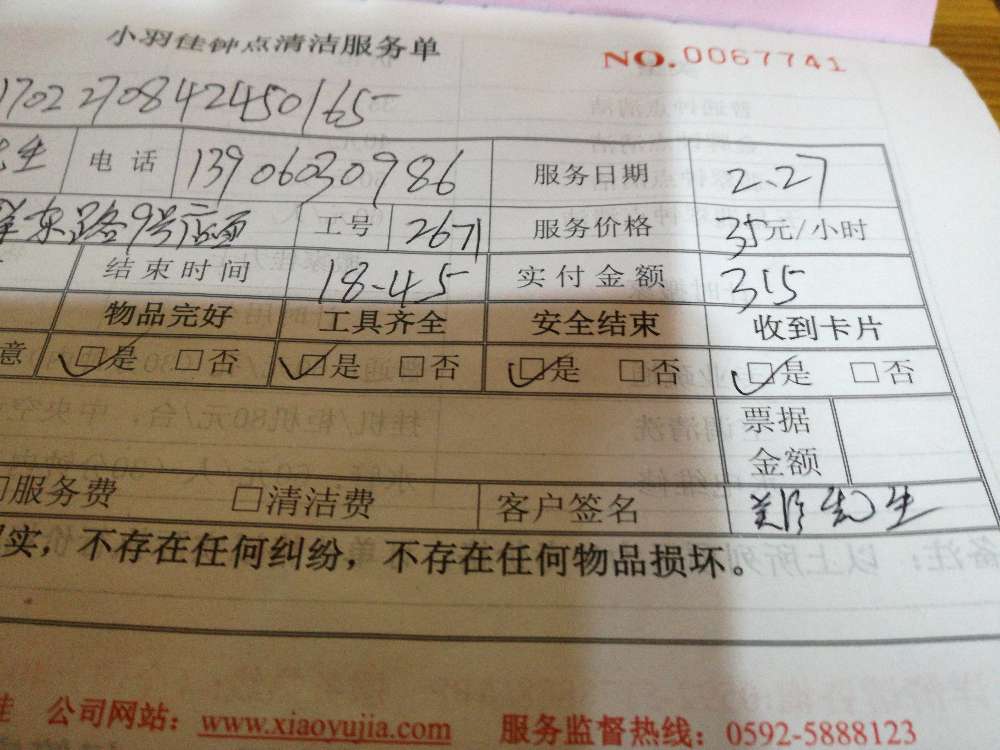 小羽佳钟点清洁服务单 NO.0067741
1702270842450165
先生 电话 13906030986 服务日期 2.27
东路9号店面 工号 2671 服务价格 35元/小时
结束时间 18-45 实付金额 315
物品完好 工具齐全 安全结束 收到卡片
意 □是 □否 □是 □否 □是 □否 □是 □否
票据金额
□服务费 □清洁费 客户签名 郑先生
实，不存在任何纠纷，不存在任何物品损坏。
佳 公司网站：www.xiaoyujia.com 服务监督热线：0592-5888123